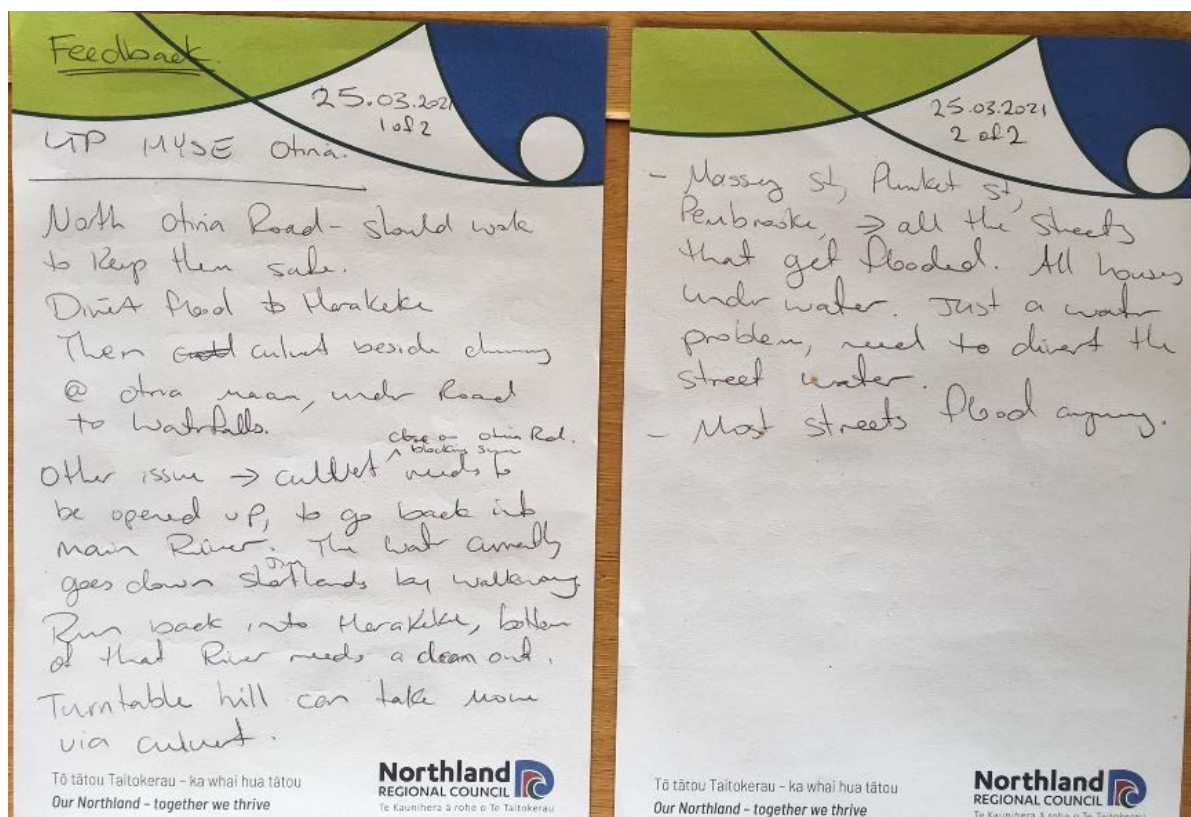 Feedback.
25.03.2021
1 of 2
LTP HYSE Otiria.
North Otiria Road - should work
to keep them safe.
Divert flood to Harakeke
Then culvert beside
@ Otiria marae, under Road
to Waterfalls.
close on Otiria Rd.
blocking
Other issue → culvert needs to
be opened up, to go back into
main River. The water currently
goes down by walkway.
Run back into Harakeke, bottom
of that River needs a clean out.
Turntable hill can take more
via culvert.
Tō tātou Taitokerau – ka whai hua tātou
Our Northland – together we thrive
Northland
REGIONAL COUNCIL
Te Kaunihera ā rohe o Te Taitokerau
25.03.2021
2 of 2
- Massey st, Plunket st,
Pembroke, → all the streets
that get flooded. All houses
under water. Just a water
problem, need to divert the
street water.
- Most streets flood anyway.
Tō tātou Taitokerau – ka whai hua tātou
Our Northland – together we thrive
Northland
REGIONAL COUNCIL
Te Kaunihera ā rohe o Te Taitokerau